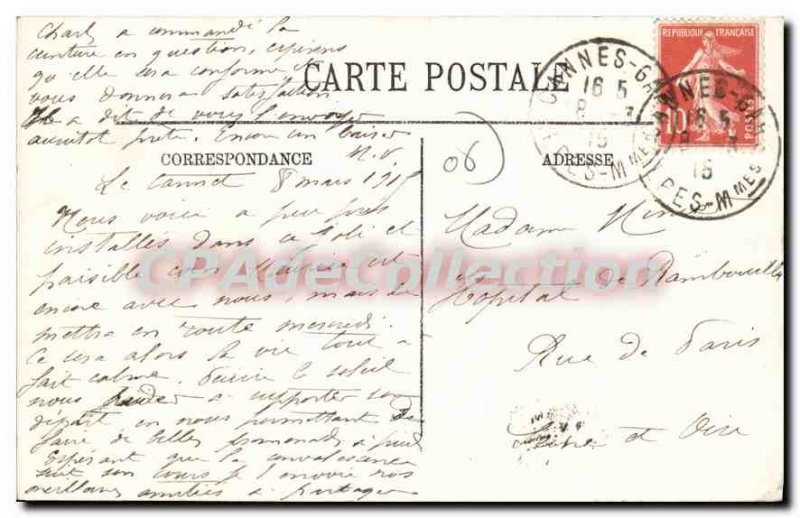 Charly a commandé la
ceinture en question, espérons
qu'elle sera conforme et
vous donnera satisfaction
Il a dit de vous l'envoyer
aussitôt prête. Encore un baiser
CARTE POSTALE
CORRESPONDANCE
ADRESSE
REPUBLIQUE FRANÇAISE
10
POSTES
CANNES-GARE
16 5
8 - 3
15
ALPES-M MES
CANNES-GARE
16 5
8 - 3
15
ALPES-M MES
06
Le Cannet 8 mars 1915
Nous voici à peu près
installés dans ce joli et
paisible coin Maurice est
encore avec nous, mais se
mettra en route mercredi.
Ce sera alors la vie tout à
fait calme. Puisse le soleil
nous aider à supporter son
départ en nous permettant de
faire de belles promenades à pied
Espérant que la convalescence
suit son cours je t'envoie nos
meilleures amitiés à partager
Madame
Hôpital de Rambouillet
Rue de Paris
Seine et Oise
CPAdeCollection.com